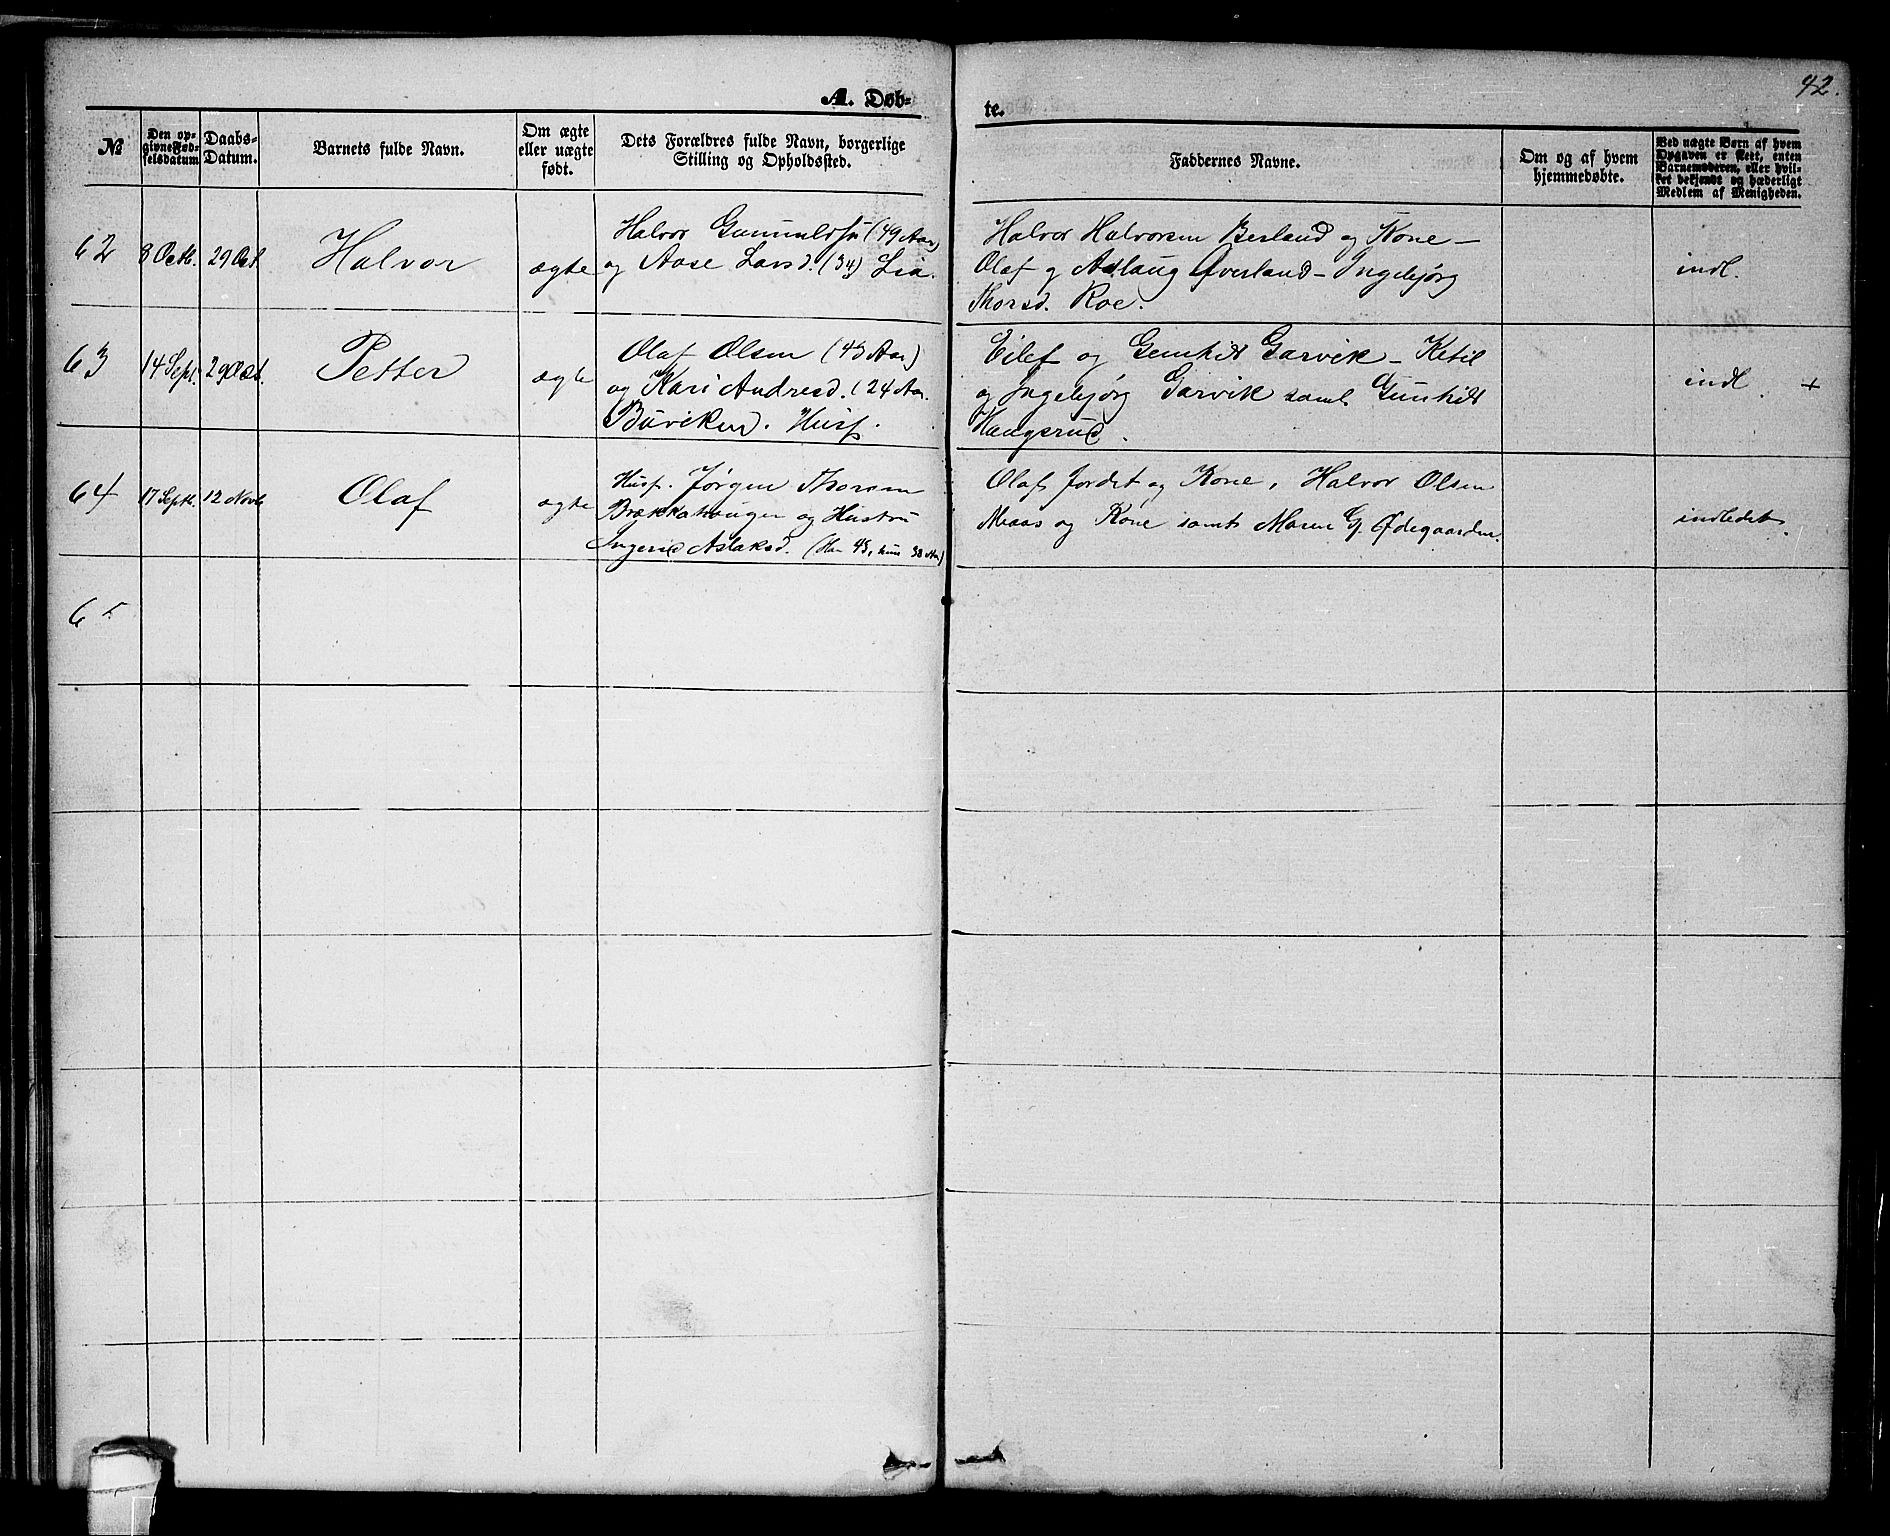 42.
A. Døb-
te.
№
Den op-
givne Fød-
selsdatum
Daabs-
Datum.
Barnets fulde Navn.
Om ægte
eller uægte
født.
Dets Forældres fulde Navn, borgerlige
Stilling og Opholdssted.
Faddernes Navne.
Om og af hvem
hjemmedøbte.
Ved uægte Børn af hvem
Opgaven er skett, enten
Barnemoderen, eller hvil-
ket bekjendt og hæderligt
Medlem af Menigheden.
62
8 Octb.
29 Oct
Halvor
ægte
Halvor Gunnuldsn (49 Aar)
og Aase Larsd. (34) Lia.
Halvor Halvorsen Berland og Kone –
Olaf g Aslaug Øverland – Ingebjørg
Thorsd. Roe.
indl.
63
14 Sept.
29 Oct.
Petter
ægte
Olaf Olsen (45 Aar)
og Kari Andresd. (24 Aar.
Buviken. Husf.
Eilef og Gunhild Garvik – Ketil
og Ingebjørg Garvik samt Gunhild
Haugerud.
indl +
64
17 Septb.
12 Novb
Olaf
ægte
Husf. Jørgen Thorsen
Brækkahauger og Hustru
Ingerid Aslaksd. (Han 45, hun 38 Aar)
Olaf Jordet og Kone, Halvor Olsen
Maas og Kone samt Maren G. Ødegaarden.
indledet.
65